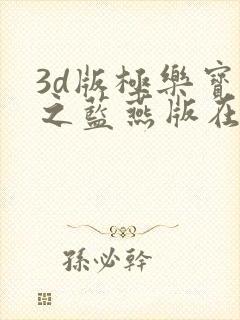 3d版極樂寶
之藍燕版在
孫必幹